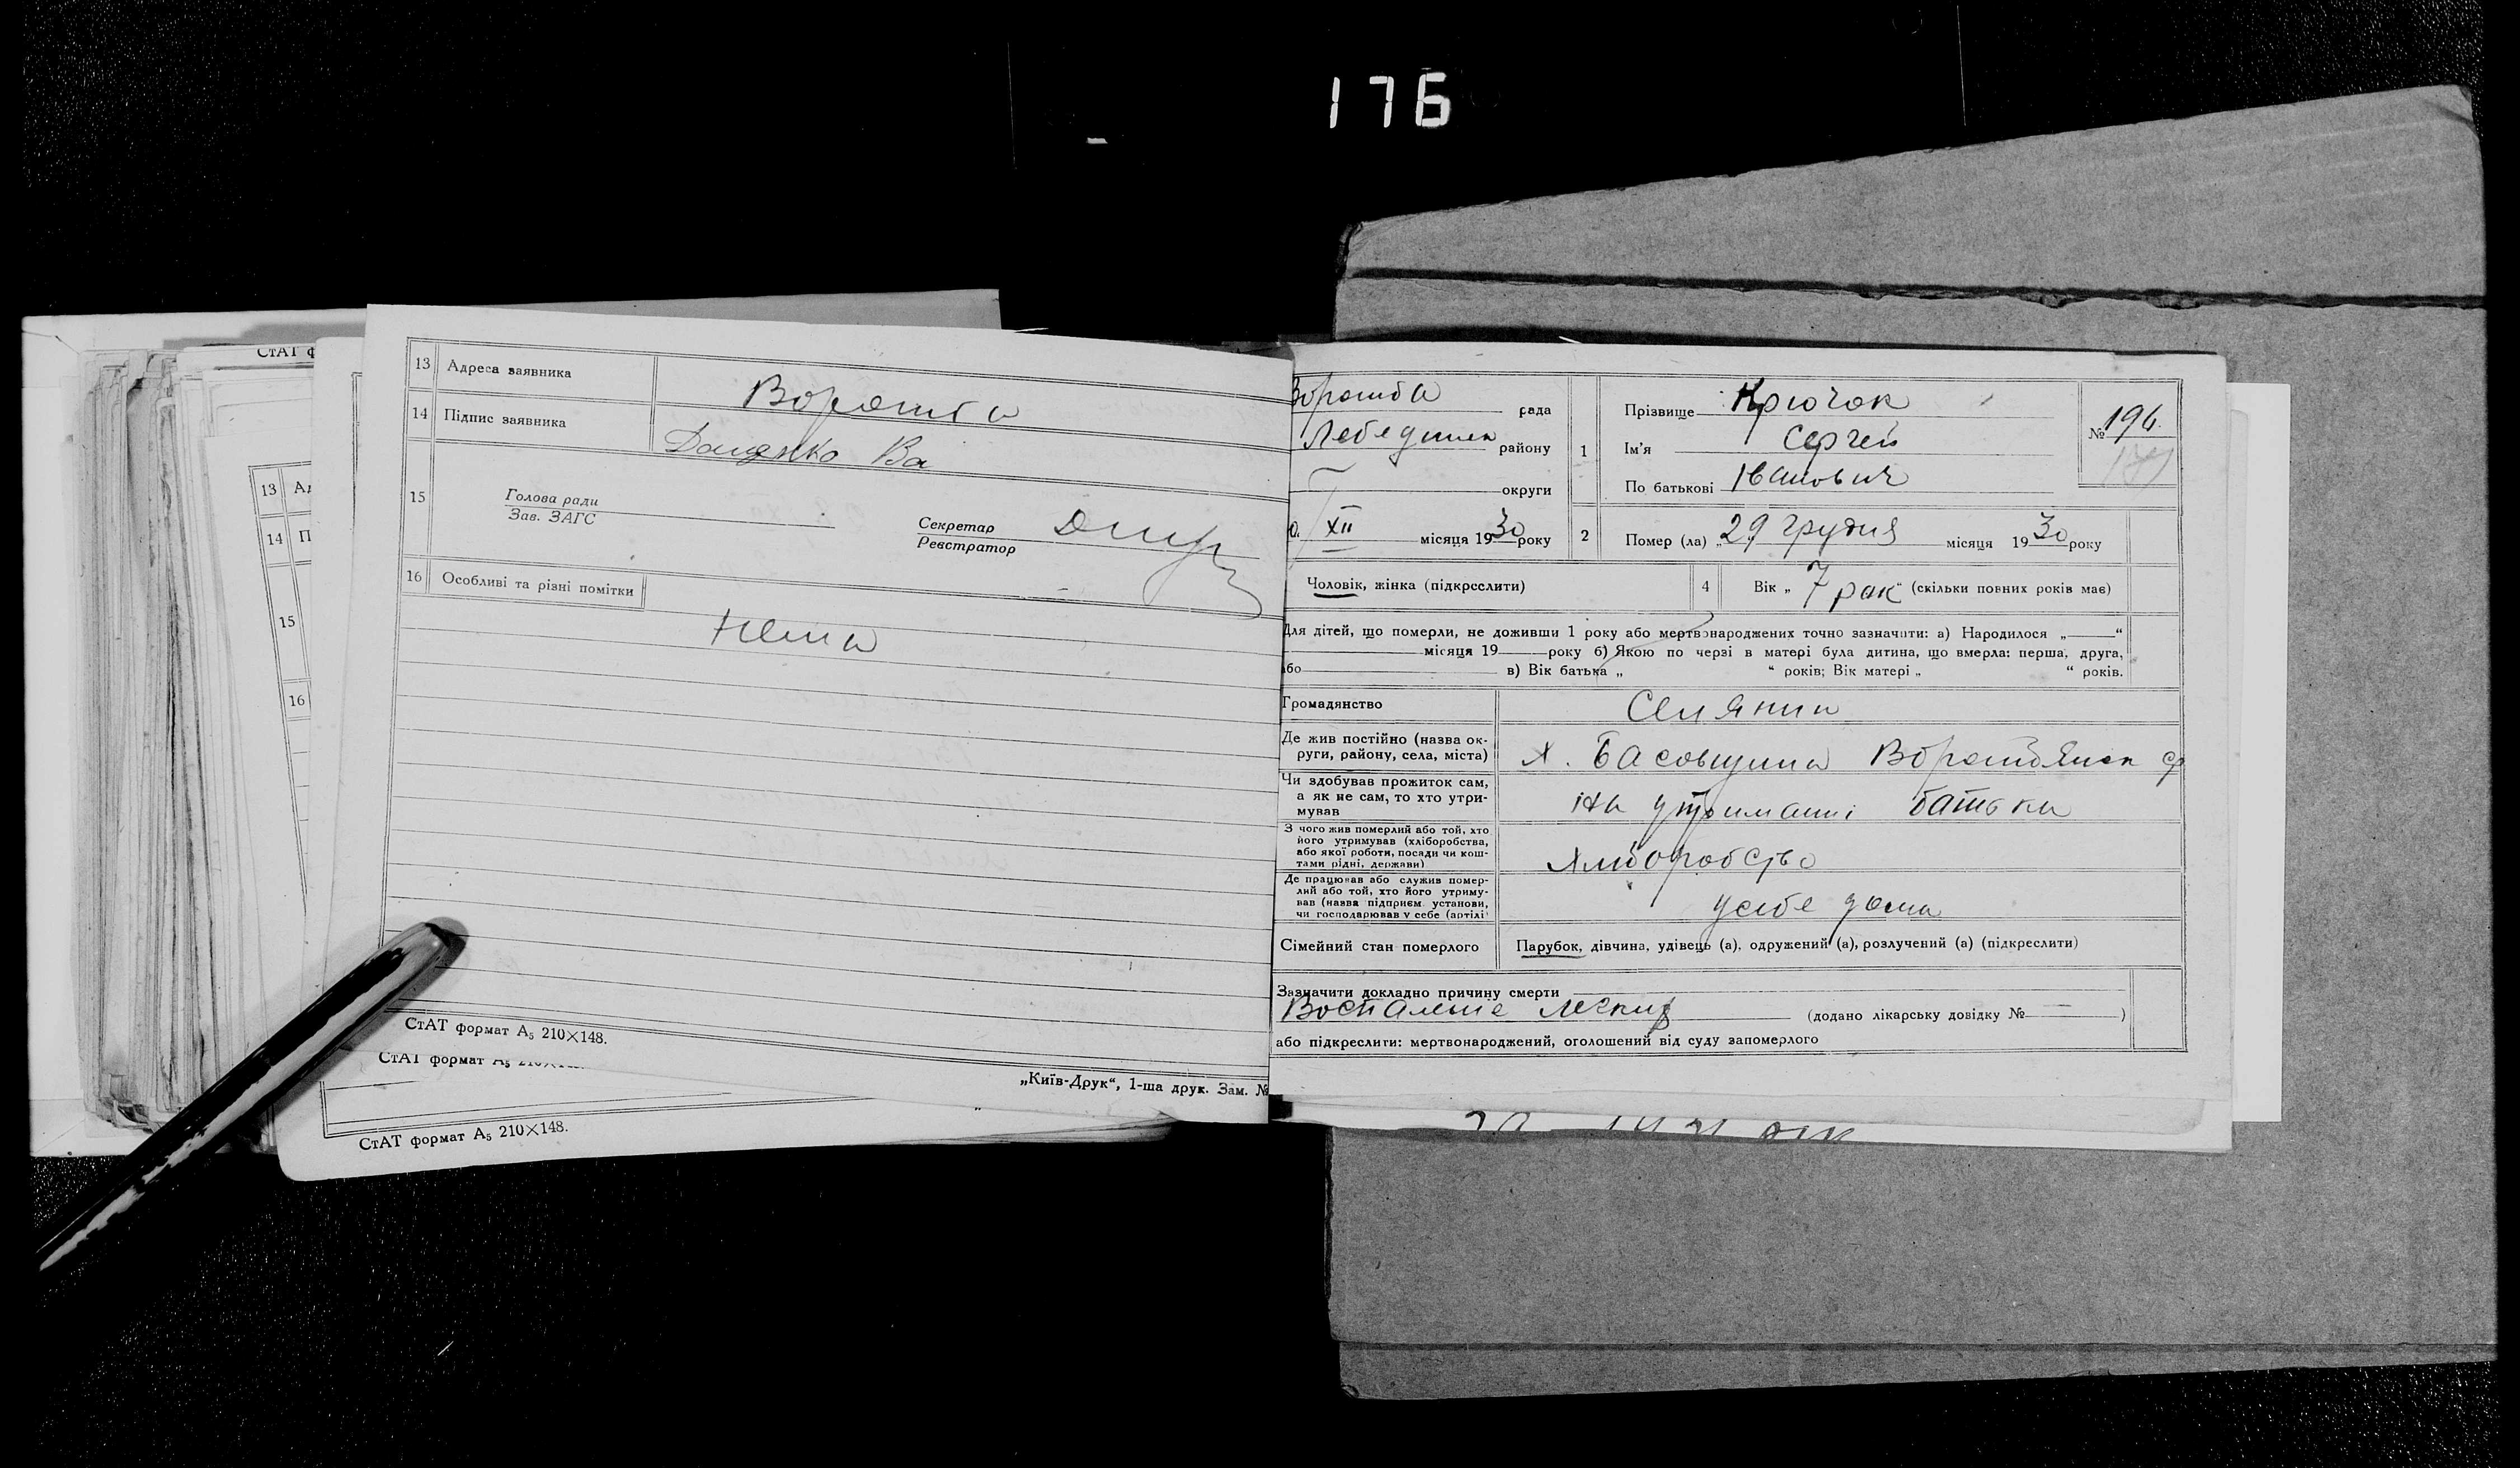 176
СтАТ ф
13 Адреса заявника Ворожба
14 Підпис заявника
15 Голова ради
Зав. ЗАГС
Секретар
Реєстратор
16 Особливі та різні помітки
Нема
СтАТ формат А5 210×148.
„Київ-Друк“, 1-ша друк. Зам. №
13 Ад
14 П
15
16
СтАТ формат
СтАТ формат А5 210×148.
Ворожба рада
Лебединск району
округи
XII місяця 1930 року
1 Прізвище Крючок
Ім'я Сергей
По батькові Іванович
№ 196.
171
2 Помер (ла) „29 грудня місяця 1930 року
Чоловік, жінка (підкреслити)
4 Вік „7 рок“ (скільки повних років має)
Для дітей, що померли, не доживши 1 року або мертвонароджених точно зазначити: а) Народилося „ “
місяця 19 року б) Якою по черзі в матері була дитина, що вмерла: перша, друга,
або в) Вік батька „ “ років; Вік матері „ “ років.
Громадянство Селянин
Де жив постійно (назва ок-
руги, району, села, міста)
х. Басовщина Ворожбянск
Чи здобував прожиток сам,
а як не сам, то хто утри-
мував
на утриманні батька
З чого жив померлий або той, хто
його утримував (хліборобства,
або якої роботи, посади чи кош-
тами рідні, держави)
Хліборобство
Де працював або служив помер-
лий або той, хто його утриму-
вав (назва підприєм. установи,
чи господарював у себе (артілі)
усебе дома
Сімейний стан померлого Парубок, дівчина, удівець (а), одружений (а), розлучений (а) (підкреслити)
Зазначити докладно причину смерти
Воспаление легких (додано лікарську довідку № — )
або підкреслити: мертвонароджений, оголошений від суду запомерлого